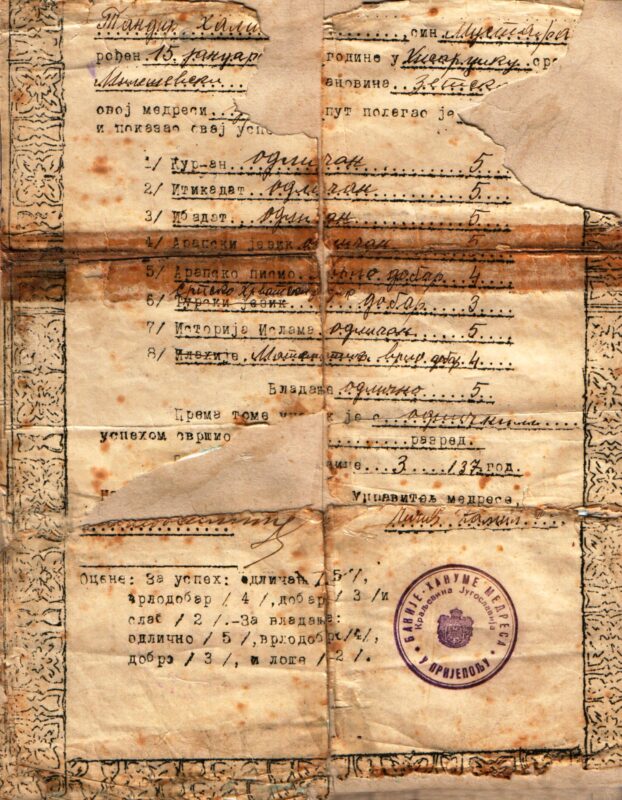 син Мустафа
рођен 15. јануар године у Хисарџику
Милешевски Зетска
овој медреси пут полагао је
и показао овај успе
1/ Кур-ан одличан 5.
2/ Итикадат одличан 5.
3/ Ибадат одличан 5.
4/ Арапски језик одличан 5
5/ Арапско писмо врло добар 4.
Српско Хрватски
6/ Турски језик добар 3
7/ Историја Ислама одличан 5.
8/ Илахија Математика врло добар 4.
Владање одлично 5.
Према томе ученик је с одличним
успехом свршио разред.
3 137 год.
Управитељ медресе,
Оцене: За успех: одличан /5/,
врлодобар /4/, добар /3/ и
слаб /2/.-За владање:
одлично /5/, врлодобро /4/,
добро /3/, и лоше /2/.
БАНИЈЕ-ХАНУМЕ МЕДРЕСА
Краљевина Југославија
У ПРИЈЕПОЉУ